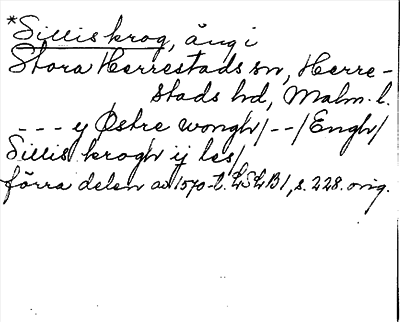 *Sillis krog, äng i
Stora Herrestads sn, Herre-
stads hd, Malm. l.
--- y Østre wongh/--/Engh/
Sillis krogh ij les/
förra delen av 1570-t. LSLB1, s. 228. orig.